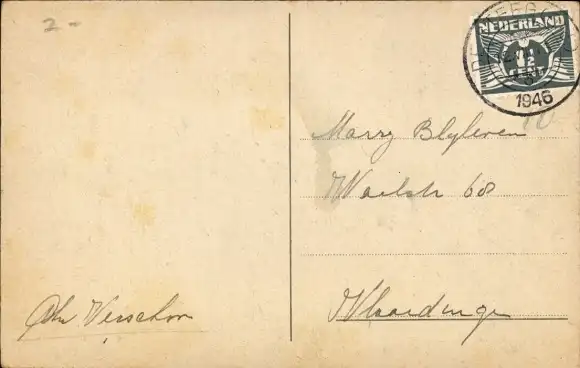 2-
NEDERLAND
1½
1946
10
Marry Blyleven
Waalstr 68
Vlaardingen
Verschoor